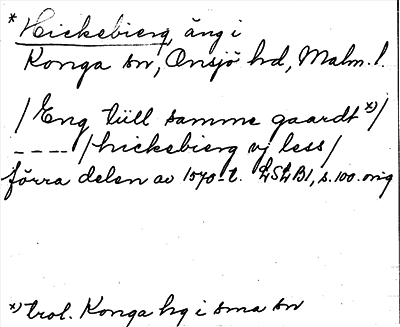 * Hickebierg, äng i
Konga sn, Onsjö hd, Malm. l.
/Eng till samme gaardt x)/
---- /hickebierg vj less/
förra delen av 1570-t. LSLB1, s. 100. orig
x) trol. Konga hg i sma sn